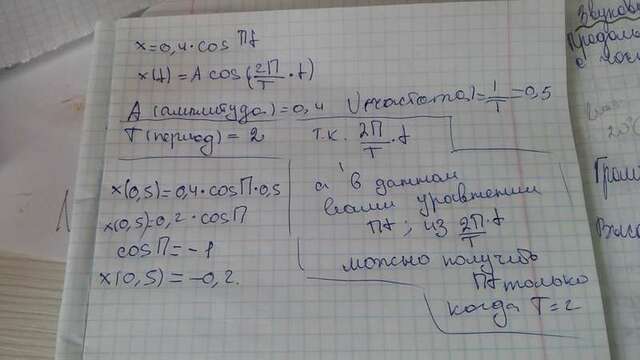 x=0,4·cos πt
x(t)=A cos(2π/T · t)
A (амплитуда)=0,4 ν(частота)=1/T=0,5
T(период)=2 т.к. 2π/T · t
x(0,5)=0,4·cosπ·0,5
x(0,5)=0,2·cosπ
cosπ=-1
x(0,5)=-0,2.
а в данном
вами уравнении
πt; из 2π/T · t
можно получить
πt только
когда T=2
Звуков
Продол
с